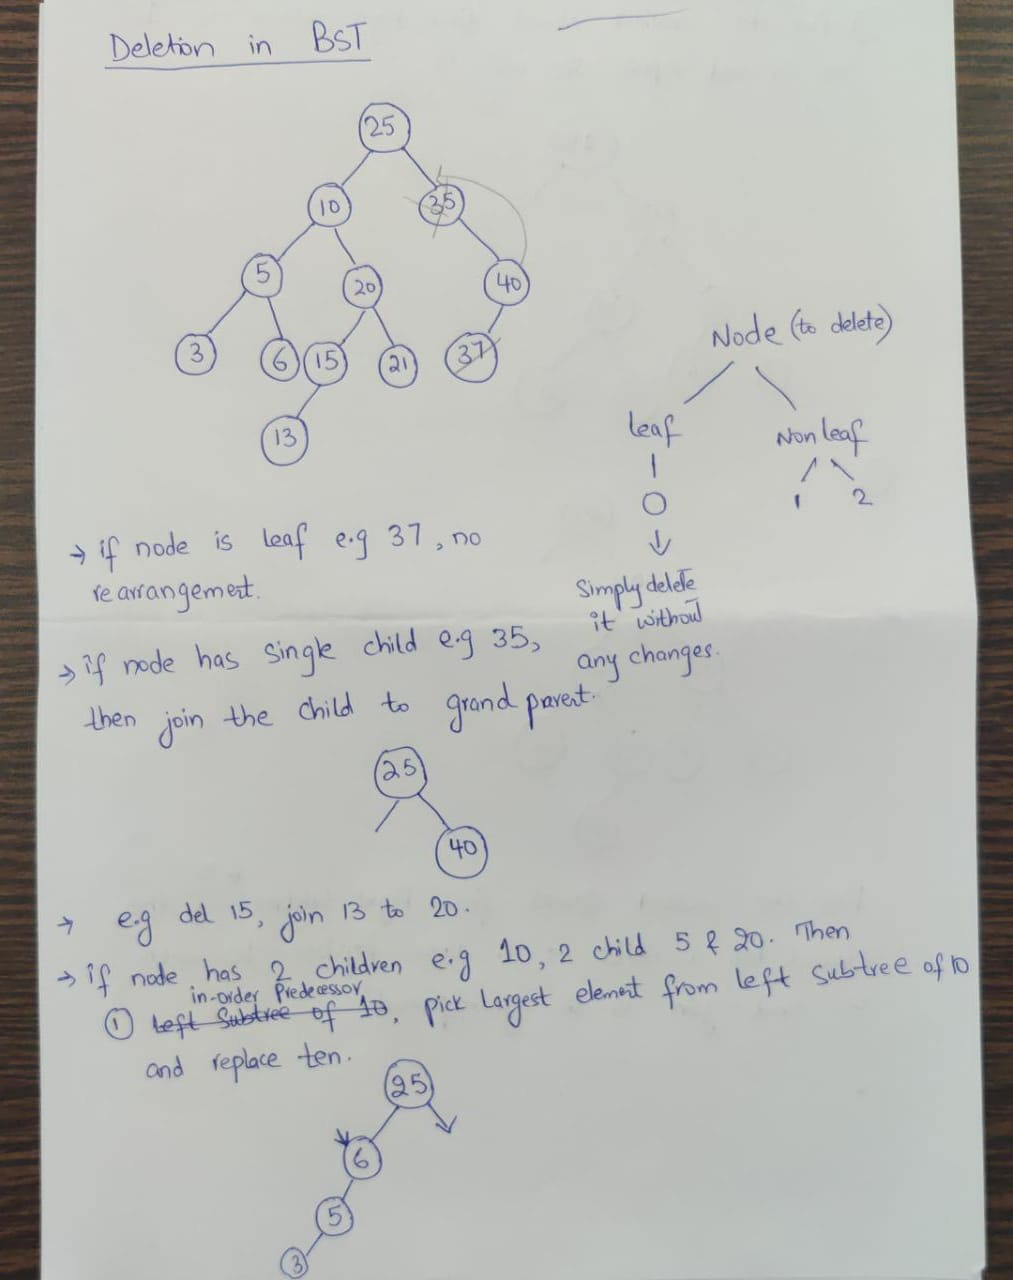 Deletion in BST
25
10 35
5 20 40
3 6 15 21 37
13
Node (to delete)
leaf Non leaf
0 1 2
Simply delete
it without
any changes.
→ if node is leaf e.g 37, no
rearrangement.
→ if node has single child e.g 35,
then join the child to grand parent.
25
40
→ e.g del 15, join 13 to 20.
→ if node has 2 children e.g 10, 2 child 5 & 20. Then
in-order Predecessor
① Left Subtree of 10, pick largest element from left subtree of 10
and replace ten.
25
6
5
3